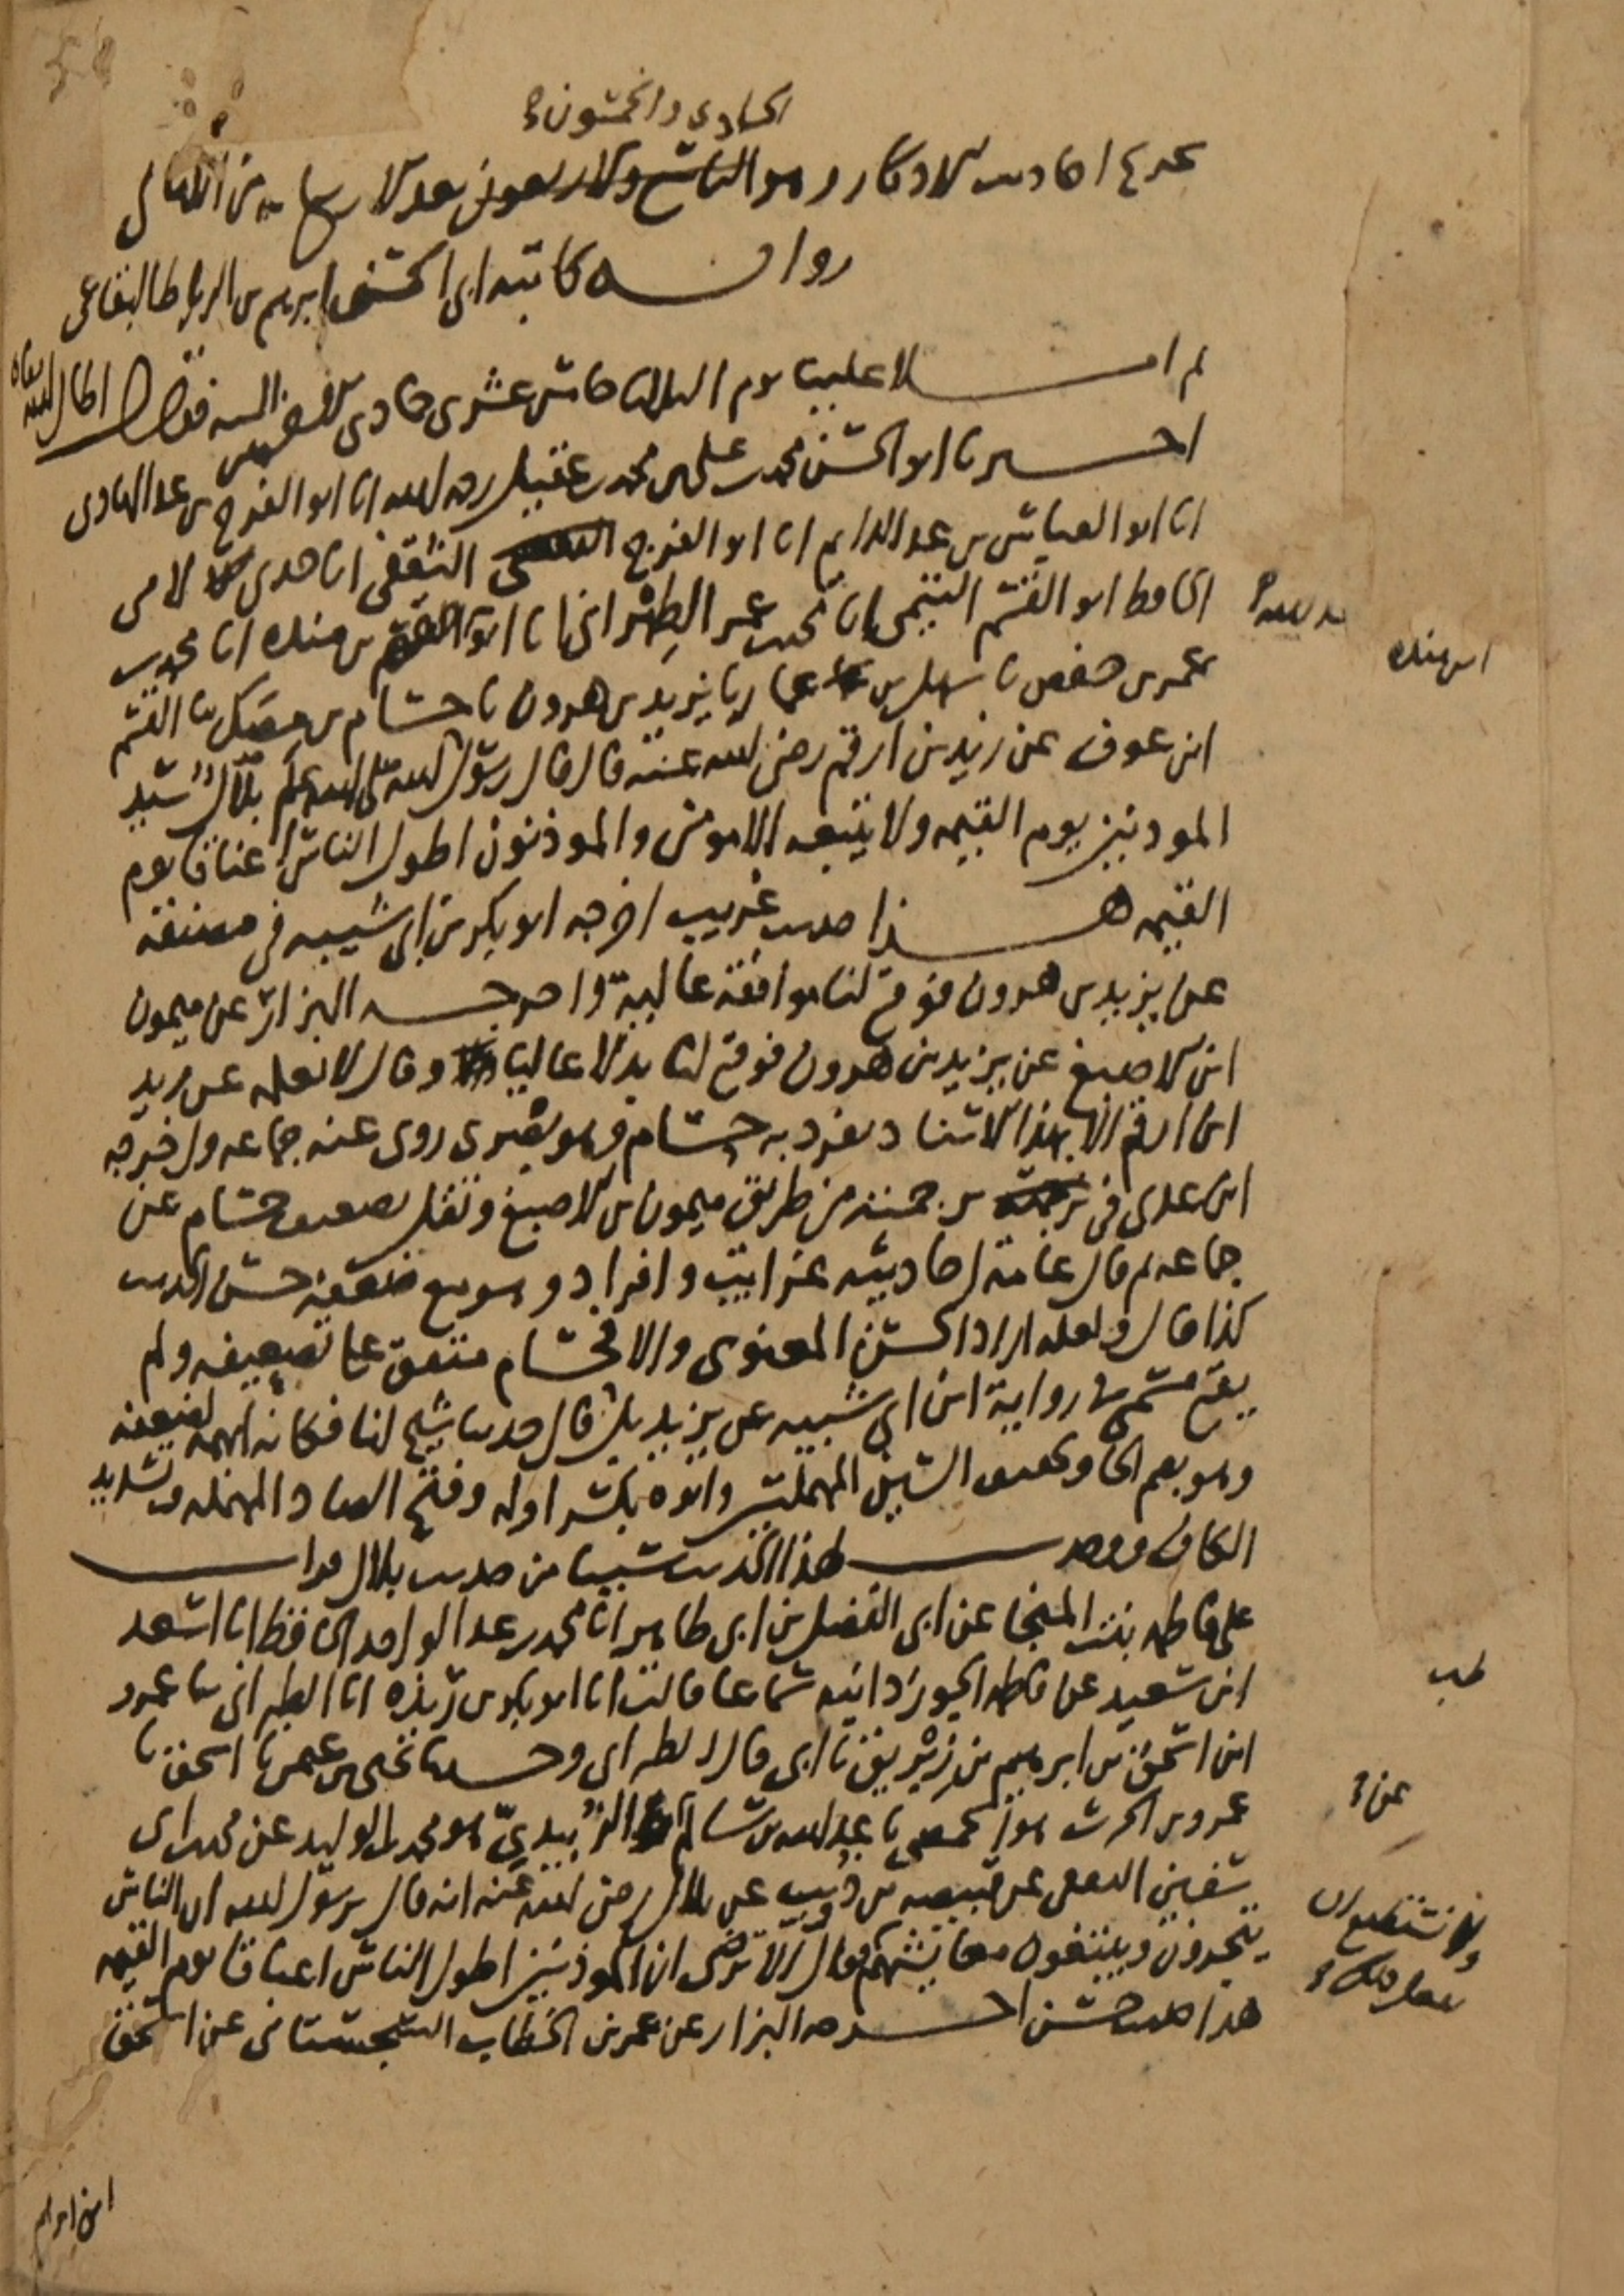 الحادي والخمسون
تخريج احاديث الاذكار وهو التاسع والاربعون بعد الاربع مايه من الامالي
رواية كاتبه ابي الحسن ابرهيم بن الرباط البقاعي
ثم املا علينا يوم الثلاثا خامس عشري جمادى السنه فقال اطال الله بقاه
اخبرنا ابو الحسن محمد بن علي بن محمد بن عقيل رحمه الله انا ابو الفرج بن عبد الهادي
انا ابو العباس بن عبد الدايم انا ابو الفرج الثقفي انا جدي لامي
الحافظ ابو القسم التيمي انا محمد بن عمر الطهراني انا ابو بن منده انا محمد بن
عمر بن حفص نا سهل بن عمار نا يزيد بن هرون نا حسام بن مصك نا القسم
ابن عوف عن زيد بن ارقم رضي الله عنه قال قال رسول الله صلى الله عليه وسلم بلال سيد
الموذنين يوم القيمه ولا يتبعه الا مومن والموذنون اطول الناس اعناقا يوم
القيمه هذا حديث غريب اخرجه ابو بكر بن ابي شيبه في مصنفه
عن يزيد بن هرون فوقع لنا موافقة عالية واخرجه البزار عن ميمون
ابن الاصبغ عن يزيد بن هرون فوقع لنا بدلا عاليا وقال لا نعلمه عن زيد
ابن ارقم الا بهذا الاسناد تفرد به حسام وهو بصري روى عنه جماعه واخرجه
ابن عدي في ترجمته من طريق ميمون بن الاصبغ ونقل تضعيف حسام عن
جماعه ثم قال عامة احاديثه غرايب وافراد وهو مع ضعفه حسن الحديث
كذا قال ولعله اراد الحسن المعنوي والا فحسام متفق على تضعيفه ولم
يقع مسمى في رواية ابن ابي شيبه عن يزيد بل قال حدثنا شيخ لنا فكانه ابهمه لضعفه
وهو بضم الحا وتخفيف السين المهملتين وابوه بكسر اوله وفتح الصاد المهمله وتشديد
الكاف ووجدت لهذا الحديث شيا من حديث بلال قرات
على فاطمه بنت المنجا عن ابي الفضل بن ابي طاهر انا محمد بن عبد الواحد الحافظ انا اسعد
ابن سعيد عن فاطمه الجوزدانيه سماعا قالت انا ابو بكر بن ريذه انا الطبراني نا عمرو
ابن اسحق بن ابرهيم بن زبريق نا ابي قال الطبراني وحدثنا يحيى بن عمر نا اسحق نا
عمرو بن الحرث هو الحمصي نا عبد الله بن سالم الزبيدي هو محمد بن الوليد عن محمد بن ابي
سفين الثقفي عن قبيصه بن ذويب عن بلال رضي الله عنه انه قال يرسول الله ان الناس
يتجرون ويبتغون معايشهم فقال الا ترضى ان الموذنين اطول الناس اعناقا يوم القيمه
هذا حديث حسن اخرجه البزار عن عمر بن الخطاب السجستاني عن اسحق
ابن منده
عن
ابن ابرهيم